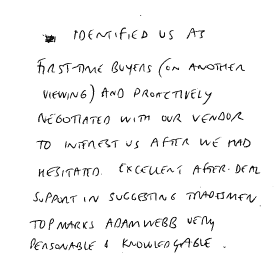 IDENTIFIED US AS
FIRST-TIME BUYERS (ON ANOTHER
VIEWING) AND PROACTIVELY
NEGOTIATED WITH OUR VENDOR
TO INTEREST US AFTER WE HAD
HESITATED. EXCELLENT AFTER-DEAL
SUPPORT IN SUGGESTING TRADESMEN.
TOP MARKS ADAM WEBB VERY
PERSONABLE & KNOWLEDGEABLE.